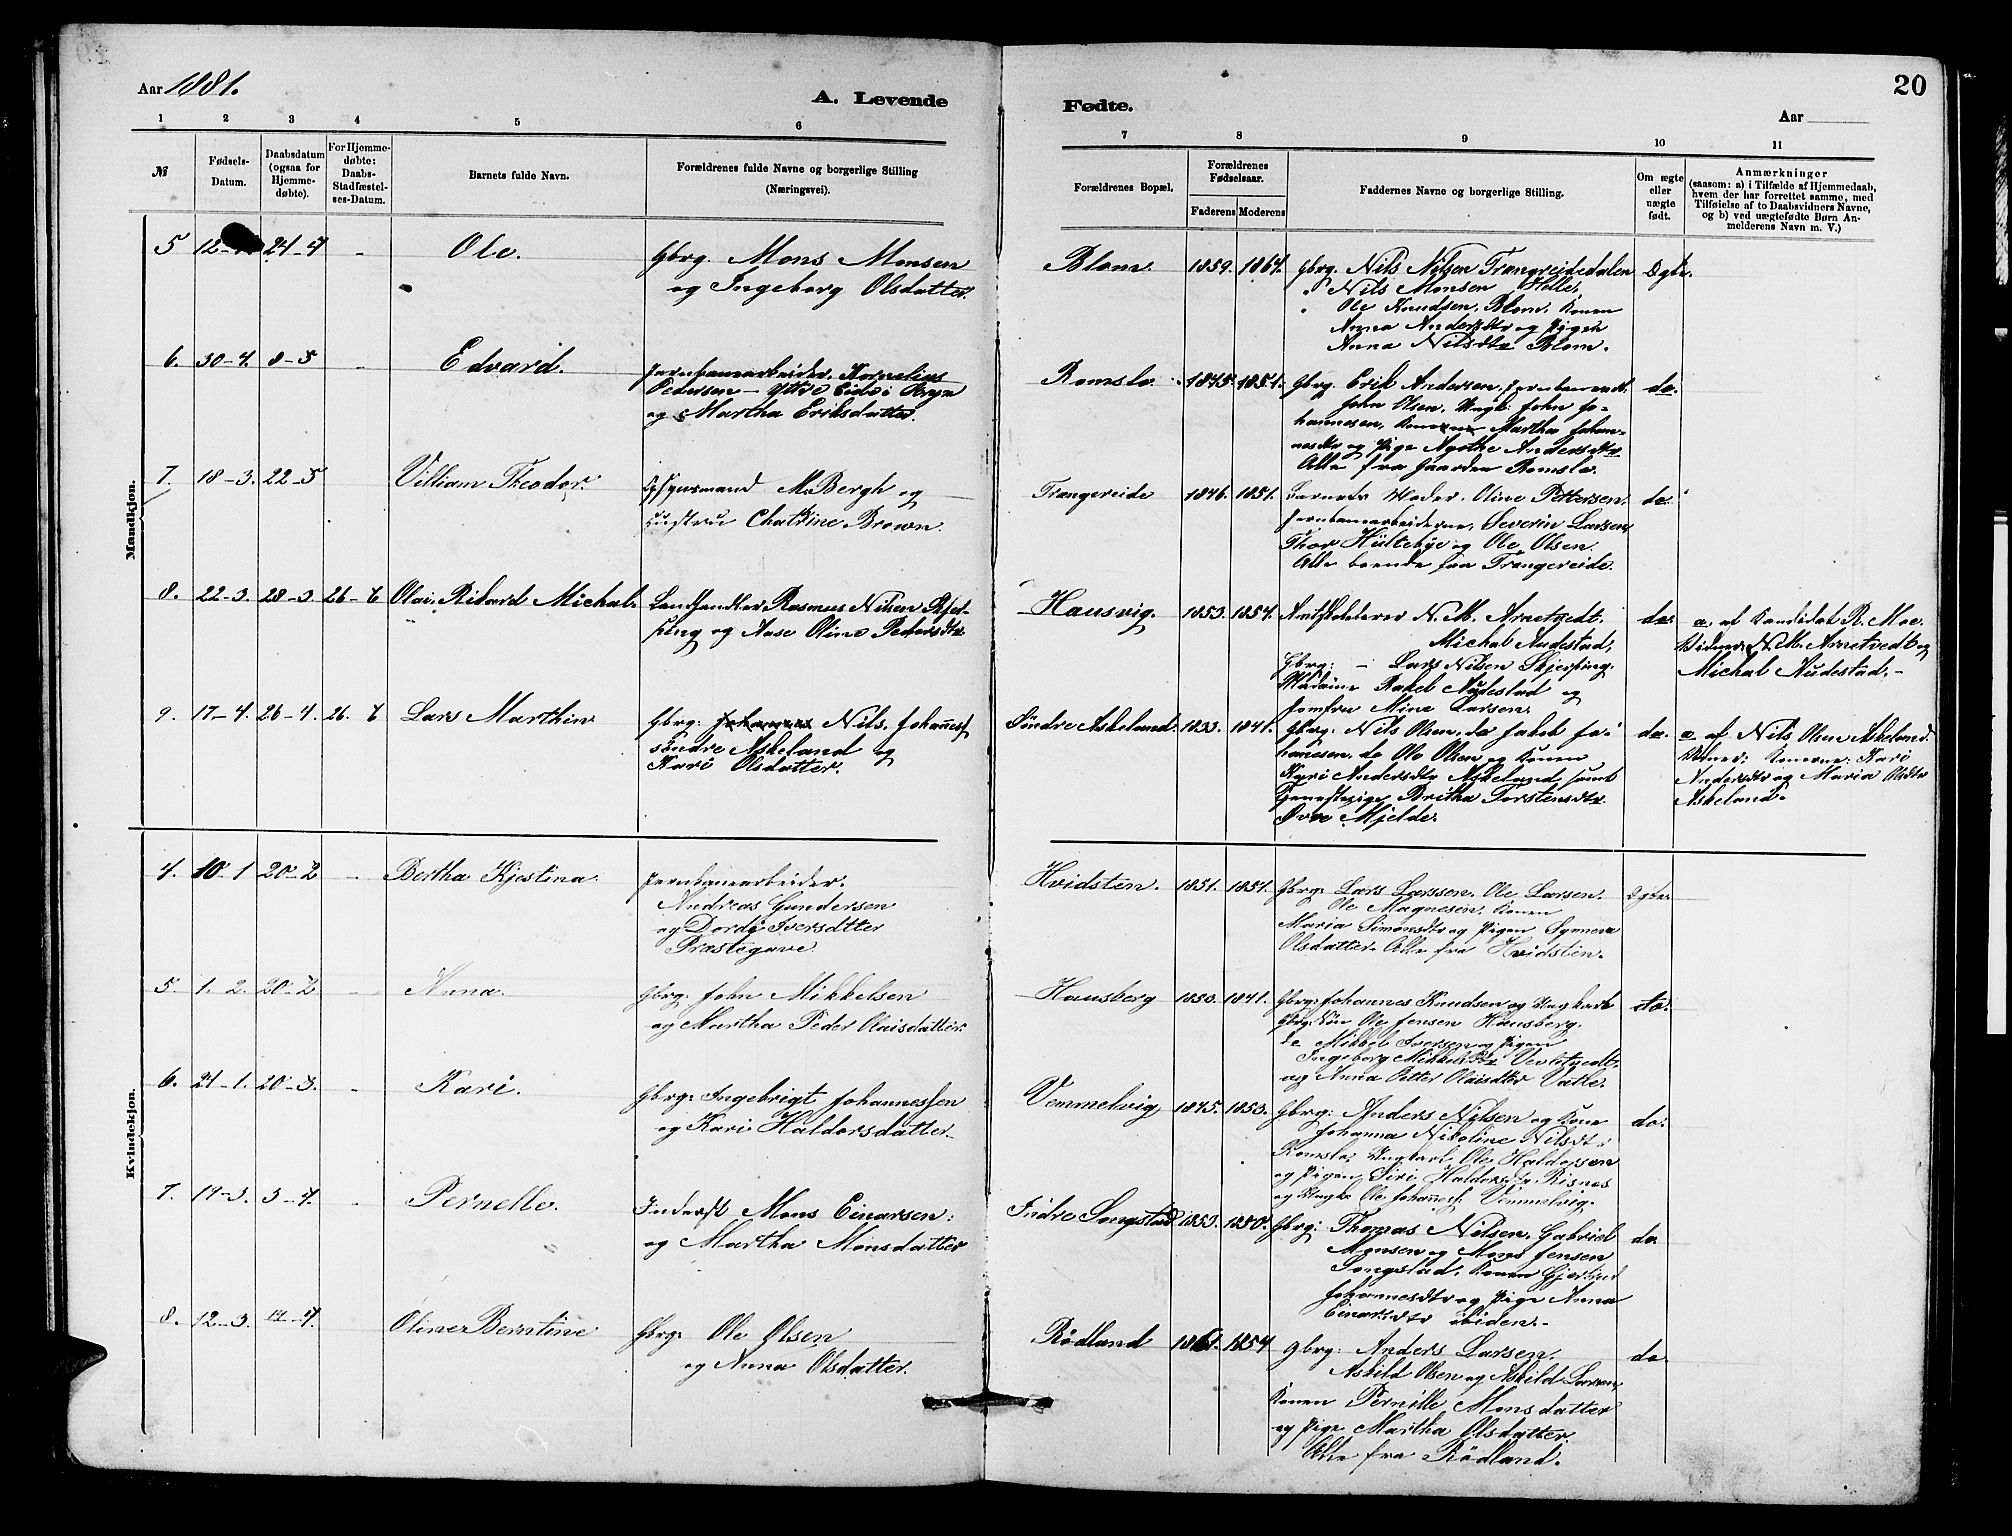 20
Aar 1881.
A. Levende
Fødte.
Aar
1 2 3 4 5 6 7 8 9 10 11
№
Fødsels-
Datum.
Daabsdatum
(ogsaa for
Hjemme-
døbte).
For Hjemme-
døbte:
Daabs-
Stadfæstel-
ses-Datum.
Barnets fulde Navn.
Forældrenes fulde Navne og borgerlige Stilling
(Næringsvei).
Forældrenes Bopæl.
Forældrenes
Fødselsaar.
Faderens Moderens
Faddernes Navne og borgerlige Stilling.
Om ægte
eller
uægte
født.
Anmærkninger
(saasom: a) i Tilfælde af Hjemmedaab,
hvem der har forrettet samme, med
Tilføielse af to Daabsvidners Navne,
og b) ved uægtefødte Børn An-
melderens Navn m. V.)
Mandkjøn.
5 12- 24-4 - Ole.
Gbrg. Mons Monsen
og Ingeborg Olsdatter.
Blom. 1859. 1864.
Gbrg. Nils Nilsen Trængereidedalen
" Nils Monsen Helle.
" Ole Knudsen, Blom, Konen
Anna Andersdtr og Pigen
Anna Nilsdtr Blom.
Ægte.
6. 30-4. 8-5 - Edvard.
Jernbanearbeider. Kornelius
Pedersen - Ytre Eide i Gryn
og Martha Eriksdatter.
Romslo. 1845. 1851.
Gbrg. Erik Andersen, Jernbanearb.
John Olsen, Ungk. John Jo-
hannesen, Konerne Martha Johan-
nesdtr og Pige Agathe Andersdtr
Alle fra Gaarden Romslo.
do.
7. 18-3. 22-5 Villiam Theodor.
Opsynsmand M. Bergh og
Hustru Chatrine Brown.
Trængereide 1846. 1851.
Barnets Moder. Oline Pettersen.
Jernbanearbeiderne, Severin Larsen,
Thor Hültebye og Ole Olsen.
Alle boende paa Trængereide.
do.
8. 22-3. 28-3. 26-6 Olai Rikard Michal.
Landhandler Rasmus Nilsen Skjer-
ping og Aase Oline Pedersdtr.
Hausvig. 1853. 1854.
Amtskolelærer N. M. Arnetvedt.
Michal Audestad,
Gbrg: - Lars Nilsen Skjerping.
Madame Rakel Audestad og
Jomfru Mine Larsen.
do.
a. af Kandidat R. Moe.
Vidner, N. M. Arnetvedt og
Michal Audestad.-
9. 17-4. 26-4. 26. 6 Lars Marthin
Gbrg: Johannes Nils. Johannes
søndre Askeland og
Kari Olsdatter.
Søndre Askeland. 1833. 1841.
Gbrg: Nils Olsen, do Jakob Jo-
hannesen. do Ole Olsen og Konen
Kari Andersdtr Askeland, samt
Tjenestepige Britha Torstensdtr
Øvre Mjelde.
do.
a. af Nils Olsen Askeland.
Vidner: Konerne: Kari
Andersdtr og Maria Olsdtr
Askeland.
Kvindekjøn.
4. 10-1 20-2 - Bertha Kjestina.
Jernbanearbeider.
Andreas Gundersen
og Dorde Iversdtter
Præstegave.
Hvidsten. 1851. 1851.
Gbrg: Lars Larssen. Ole Larsen.
Ole Magnesen, Konen
Maria Simonsdtr og Pigen Synneva
Olsdatter. Alle fra Hvidsten.
Ægte.
5. 1.-2. 20-2 - Anna.
Gbrg: John Mikkelsen
og Martha Peder Olaisdatter.
Hausberg 1850. 1841.
Gbrg: Johannes Knudsen og Ungkarl
Gbrg: Søn Ole Jensen Hausberg.
do Mikkel Iversen og Pigen
Ingeborg Mikkelsdtr Vevletvedt,
og Anna Petter Olaisdtter Vatle.
do.
6. 21-1. 20-3. - Kari.
Gbrg: Ingebrigt Johannessen
og Kari Haldorsdatter.
Vemmelvig 1845. 1853.
Gbrg: Anders Nilsen og Kone
Johanna Nikoline Nilsdt.
Romslo, Ungkarl Ole Haldorsen
og Pigen Siri Haldorsdtr Risnes
og Ungk. Ole Johannes. Vemmelvig.
do.
7. 19-3. 3-4. - Pernelle.
Inderst Mons Einarsen:
og Martha Monsdatter
Indre Songstad 1853. 1850.
Gbrg: Thomas Nilsen, Gabriel
Monsen og Mons Jensen
Songstad, Konen Gjertrud
Johannesdtr og Pige Anna
Einarsdtr ibiden.-
do.
8. 12-3. 17-4. Oline Berntine
Gbrg: Ole Olsen
og Anna Olsdatter.
Rödland 1861. 1854
Gbrg: Anders Larsen,
Askild Olsen og Askild Larsen,
Konen Pernille Monsdatter
og Pige Martha Olsdatter.
Alle fra Rödland.
do.